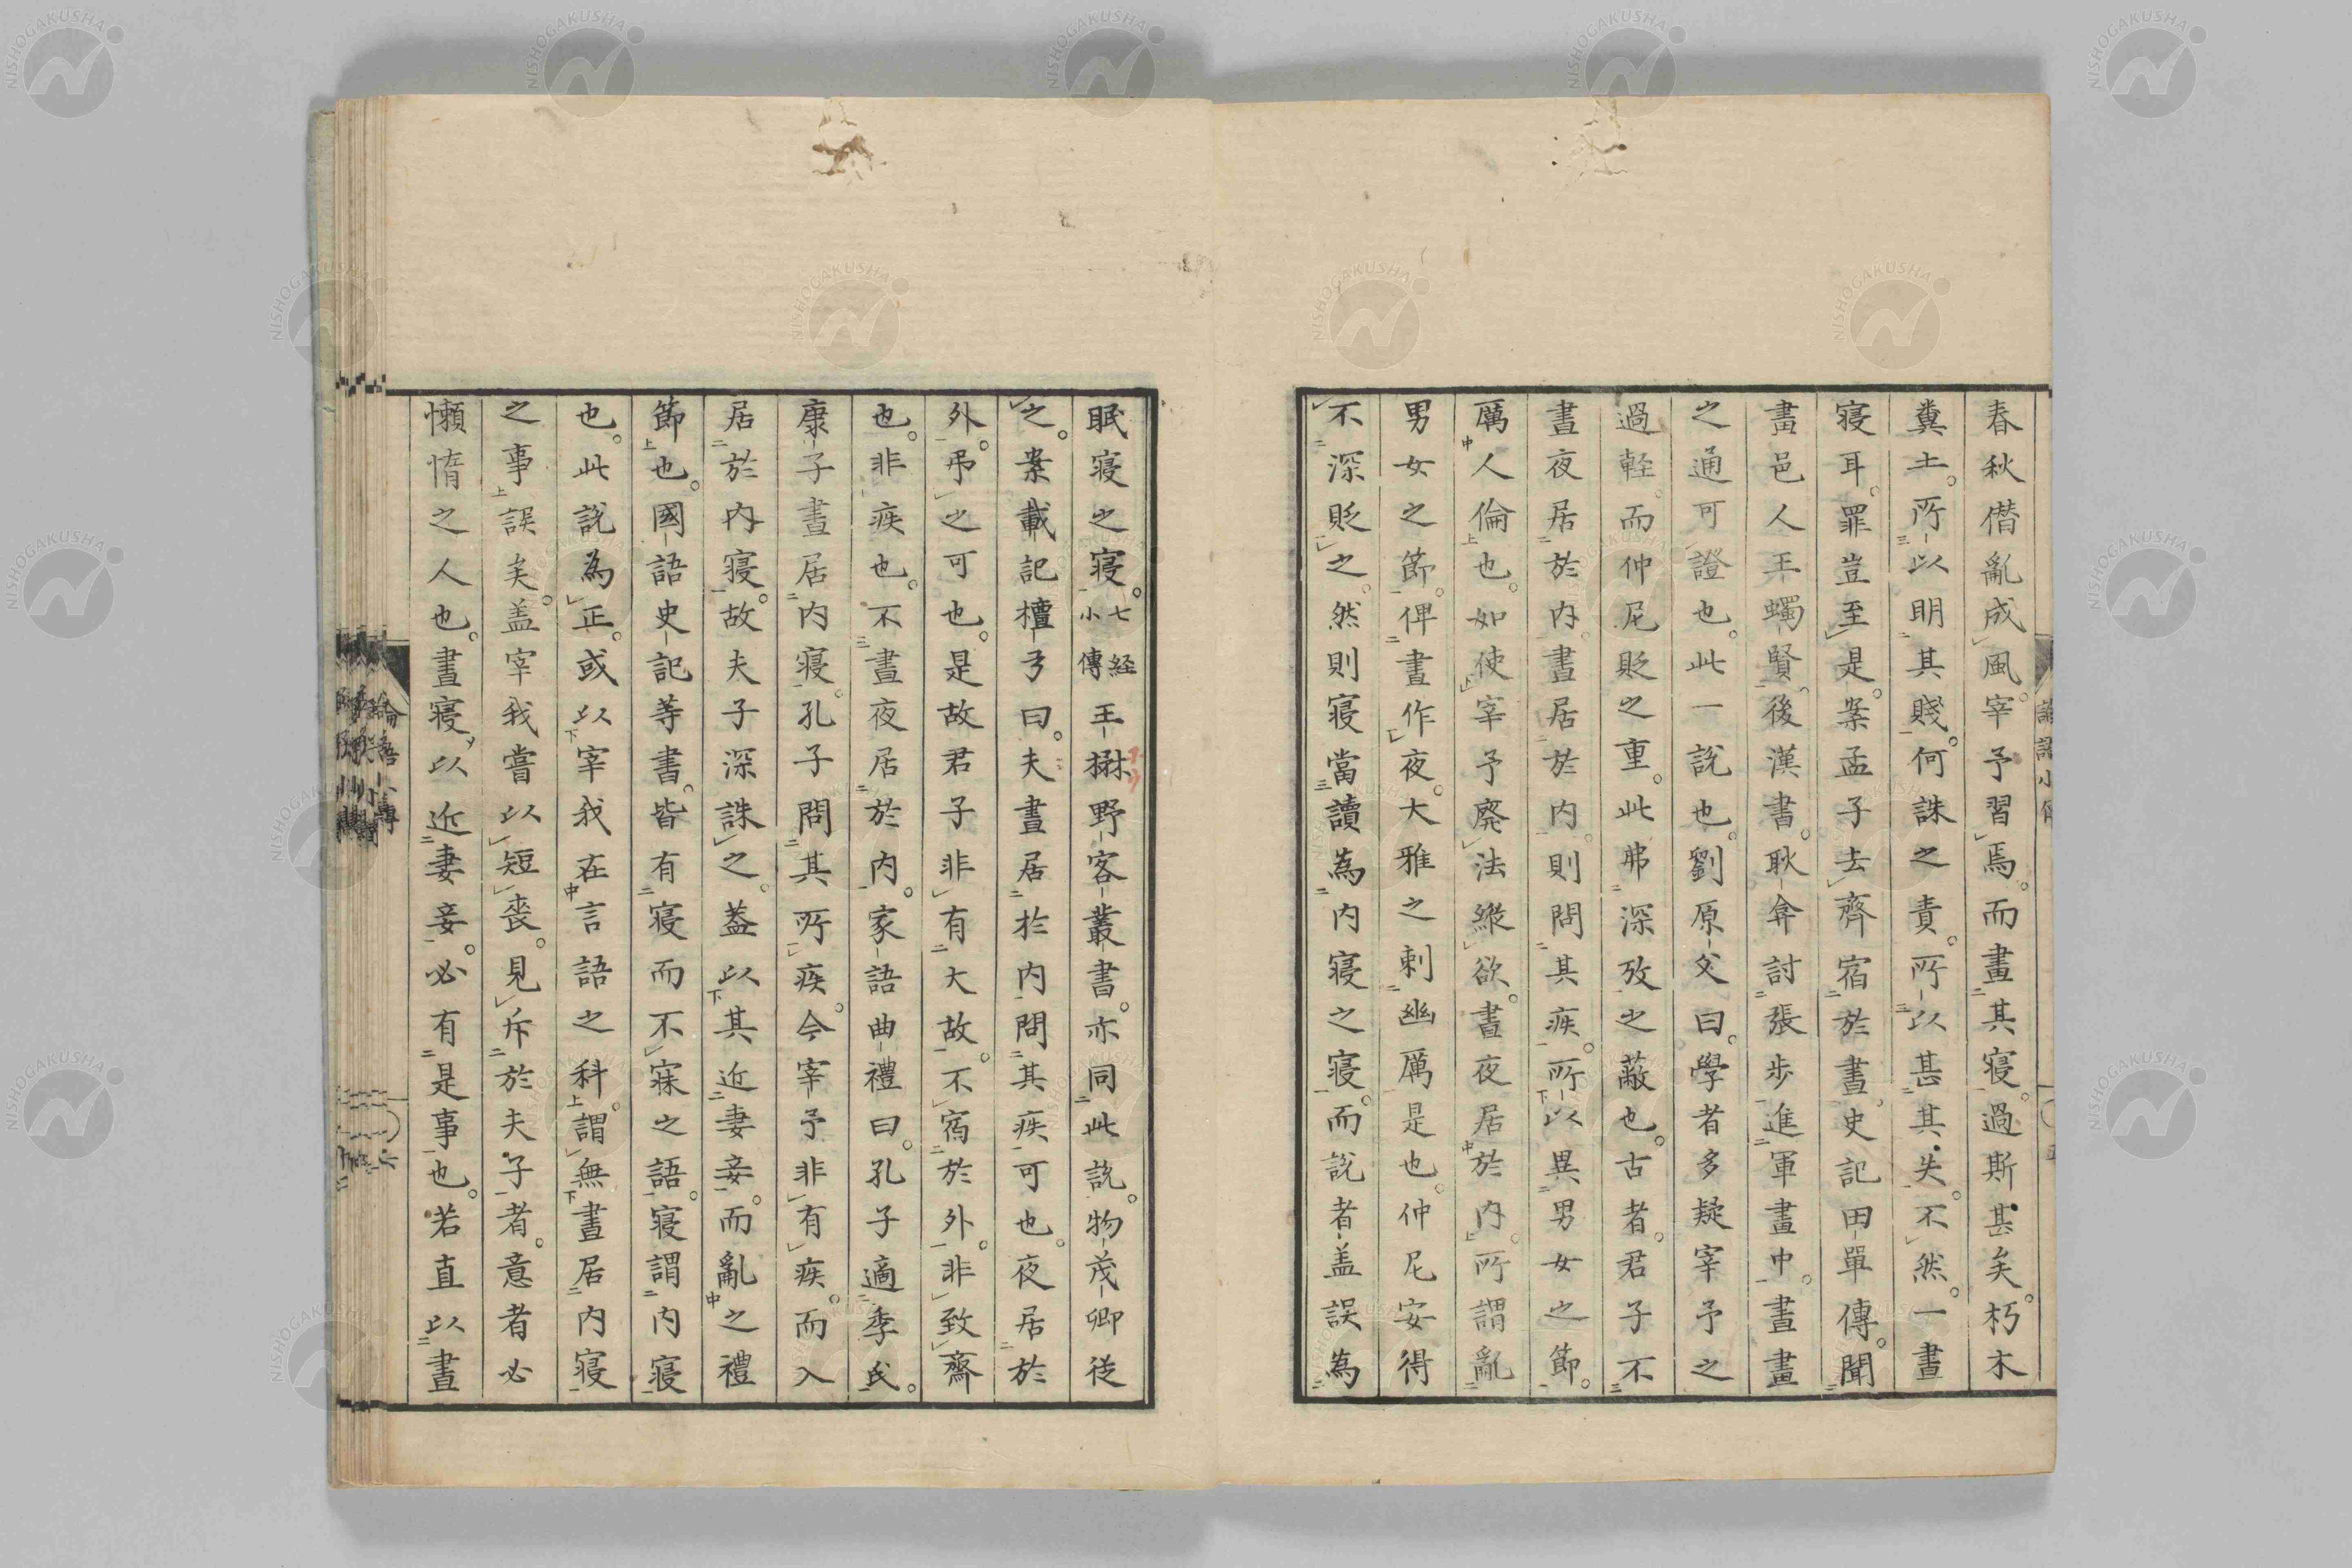 春秋僣亂成風。宰予習焉。而畫其寢。過斯甚矣。朽木
糞土。所以明其賤。何誅之責。所以甚其失。不然。一晝
寢耳。罪豈至是。案孟子去齊宿於晝。史記田單傳。聞
畫邑人王蠋賢。後漢書。耿弇討張步進軍畫中。晝畫
之通可證也。此一說也。劉原父曰。學者多疑宰予之
過輕。而仲尼貶之重。此弗深攷之蔽也。古者。君子不
晝夜居於内。晝居於内。則問其疾。所以異男女之節。
厲人倫也。如使宰予廢法縱欲。晝夜居於内。所謂亂
男女之節。俾晝作夜。大雅之刺幽厲是也。仲尼安得
不深貶之。然則寢當讀為内寢之寢。而說者盖誤為
眠寢之寢。七経小傳王楙野客叢書。亦同此說。物茂卿從
之。案載記檀弓曰。夫晝居於内問其疾可也。夜居於
外。弔之可也。是故君子非有大故。不宿於外。非致齋
也。非疾也。不晝夜居於内。家語曲禮曰。孔子適季氏。
康子晝居内寢。孔子問其所疾。今宰予非有疾。而入
居於内寢。故夫子深誅之。蓋以其近妻妾。而亂之禮
節也。國語史記等書。皆有寢而不寐之語。寢謂内寢
也。此說為正。或以宰我在言語之科。謂無晝居内寢
之事。誤矣。盖宰我嘗以短喪。見斥於夫子者。意者必
懶惰之人也。晝寢以近妻妾。必有是事也。若直以晝
論語小傳
六